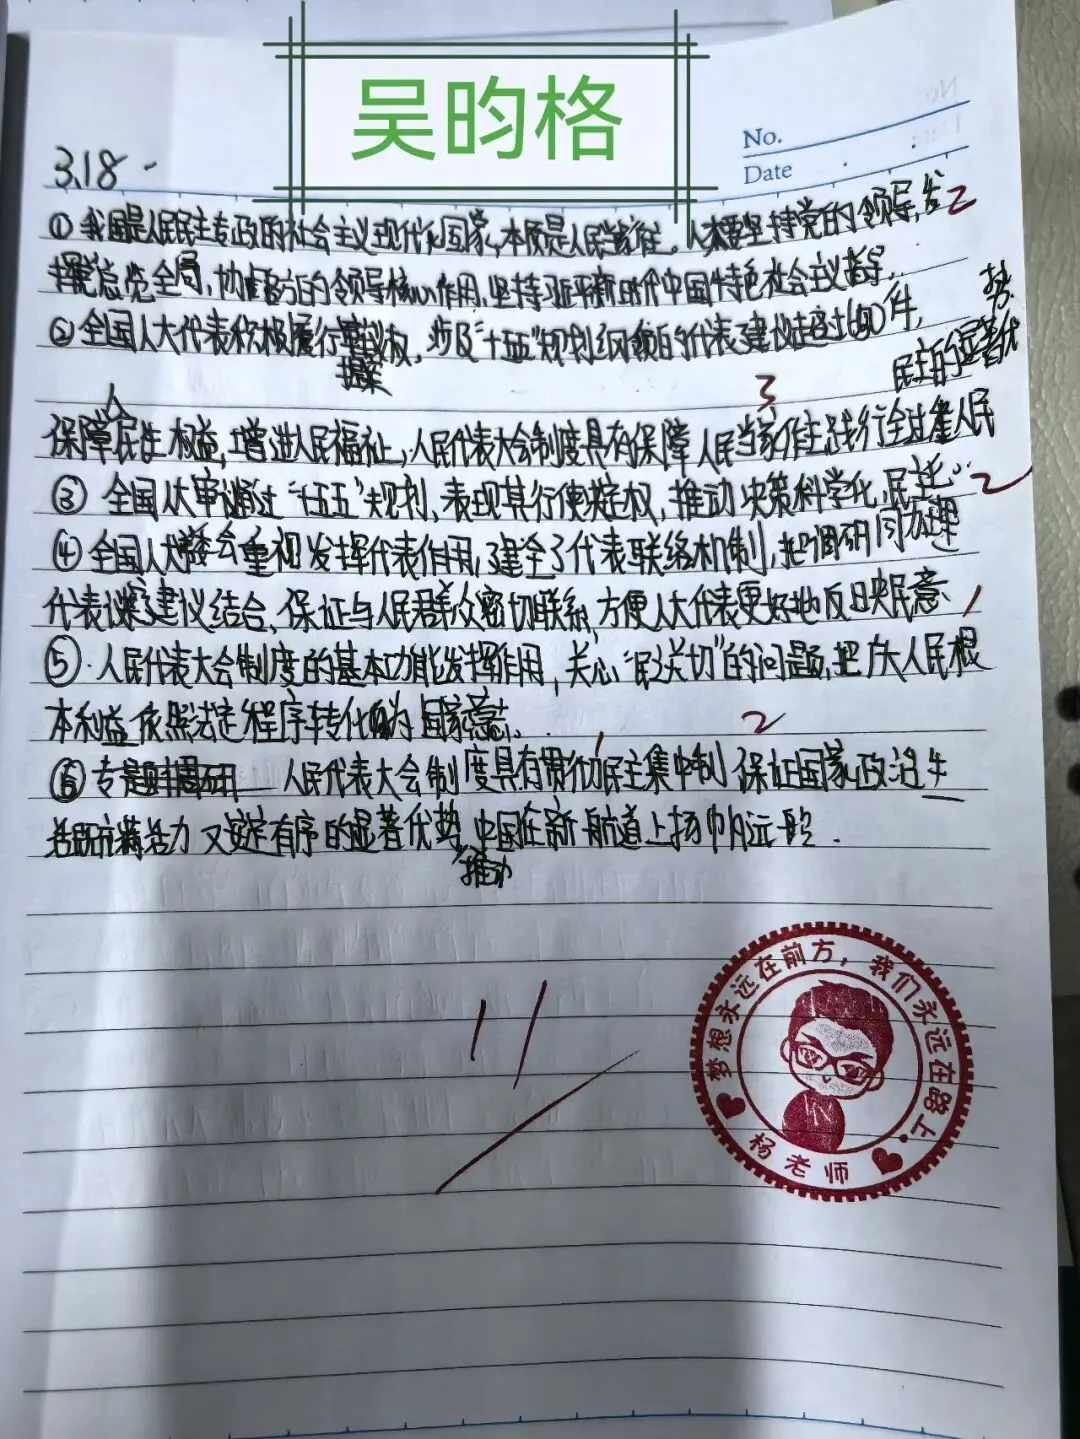 吴昀格
No.
Date
3.18
①我国是人民民主专政的社会主义现代化国家,本质是人民当家作主。人大要坚持党的领导,发 2
挥总览全局,协调各方的领导核心作用,坚持习近平新时代中国特色社会主义指导.
②全国人大代表积极履行审议权,涉及"十五五"规划纲领的代表建议超过 件,
提案
3
人
保障民生权益,增进人民福祉,人民代表大会制度具有保障人民当家作主践行全过程人民
民主的显著优
势.
③ 全国人大审议通过"十五五"规划,表现其行使决定权,推动决策科学化,民主化. 2
④全国人大常委会重视发挥代表作用,建全了代表联络机制,把调研同办理
代表议案建议结合,保证与人民群众密切联系,方便人大代表更好地反映民意. 1
⑤.人民代表大会制度的基本功能发挥作用,关心"民之关切"的问题,把广大人民根
本利益依照法定程序转化为国家意志. 2
⑥ 人民代表大会制度具有贯彻民主集中制 保证国家政治生 1
活既充满活力又安定有序的显著优势,推动中国在新航道上扬帆远航.
11
梦想永远在前方,我们永远在路上.
杨老师